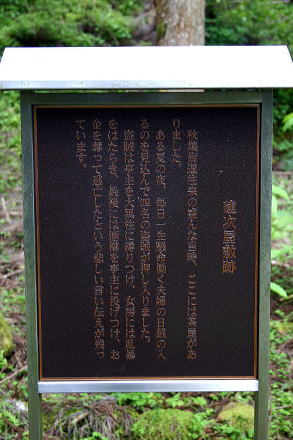 屋敷跡
秋葉街道往来の盛んな当時、ここには茶屋があ
りました。
ある夏の夜、毎日一生懸命働く夫婦の日銭の入
るのを見込んで四名の盗賊が押し入りました。
盗賊は亭主を大黒柱に縛りつけ、女房には乱暴
をはたらき、最後にはを亭主に投げつけ、お
金を奪って逃亡したという悲しい言い伝えが残っ
ています。